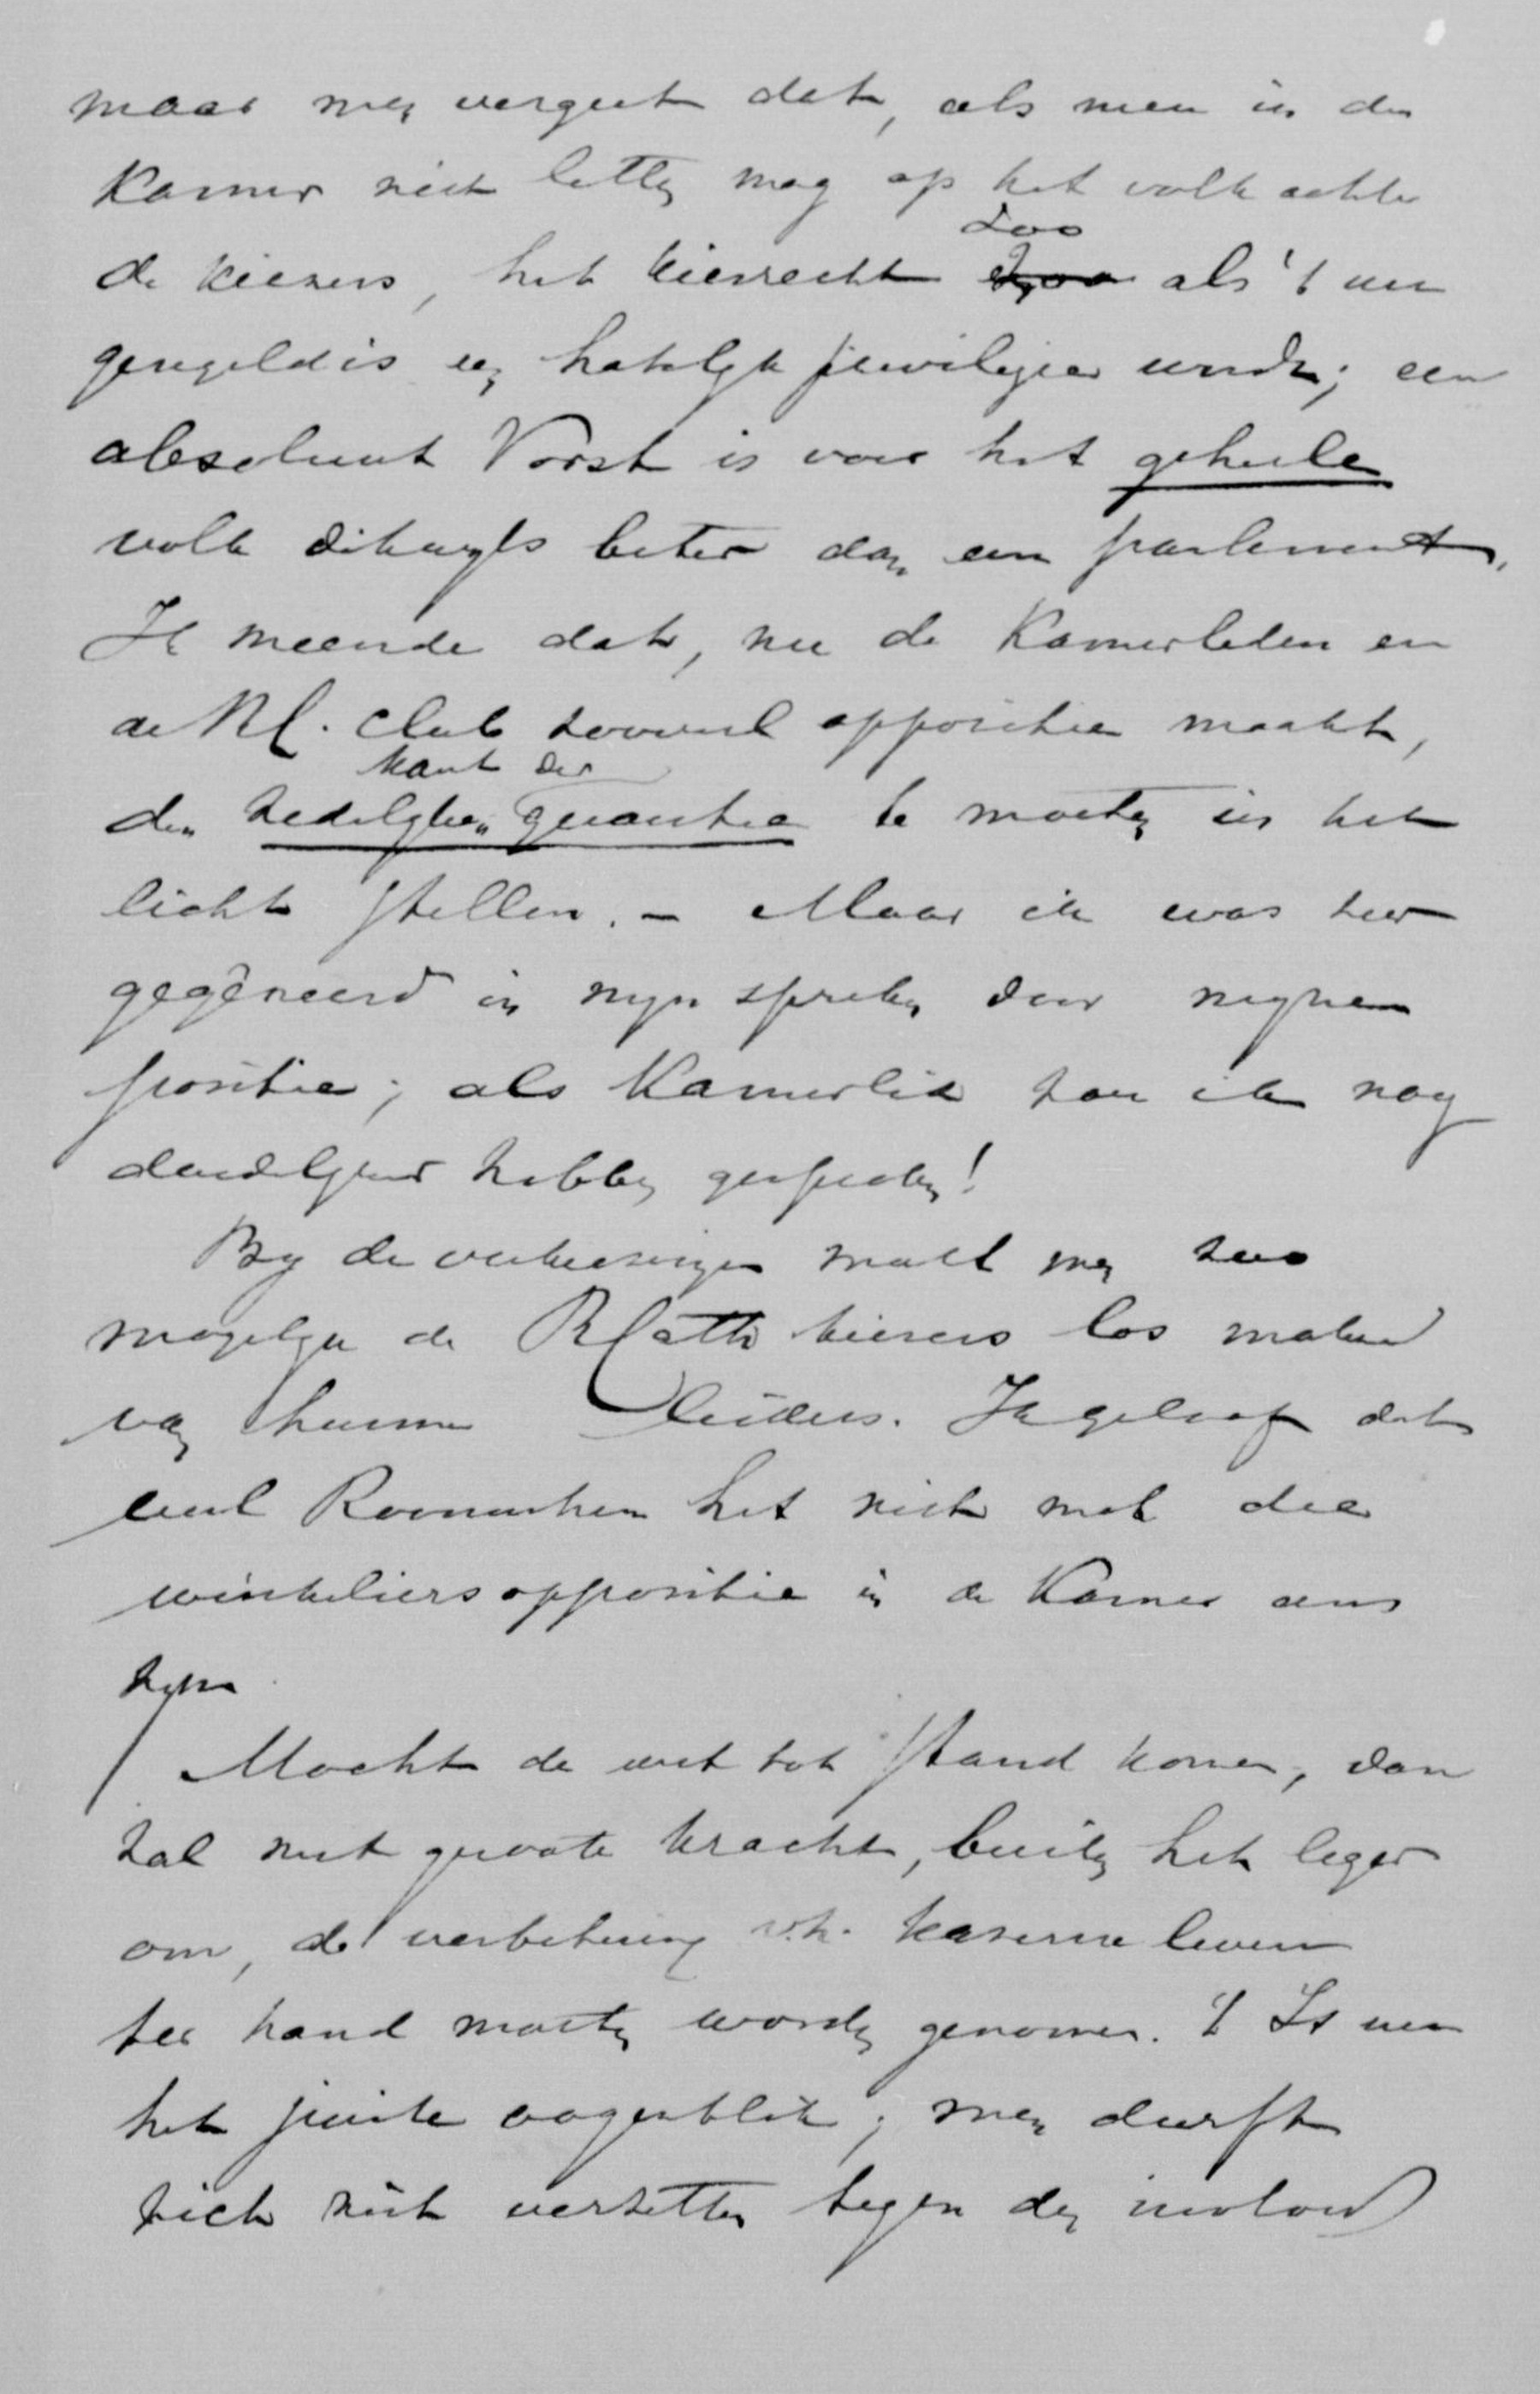 maar men vergeet dat, als men in de
Kamer niet letten mag op het volk achter
de kiezers, het kiesrecht zoo als 't nu
geregeld is een hatelijk privilegie wordt; een
absoluut Vorst is voor het geheele
volk dikwijls beter dan een parlement.
Ik meende dat, nu de Kamerleden en
de Kl. club zooveel oppositie maakt,
den zedelijken kant der quaestie te moeten in het
licht stellen. – Maar ik was zeer
gegêneerd in mijn spreken door mijne
positie; als Kamerlid zou ik nog
duidelijker hebben gesproken!
By de verkiezingen moet men zoo
mogelijk de RCath kiezers los maken
van hunne leiders. Ik geloof dat
veel Roomschen het niet met die
winkeliersoppositie in de Kamer eens
zijn
Mocht de wet tot stand komen, dan
zal met groote kracht, buiten het leger
om, de verbetering v.h. kazerne leven
ter hand moeten worden genomen. 't Is nu
het juiste oogenblik; men durft
zich niet verzetten tegen den invloed